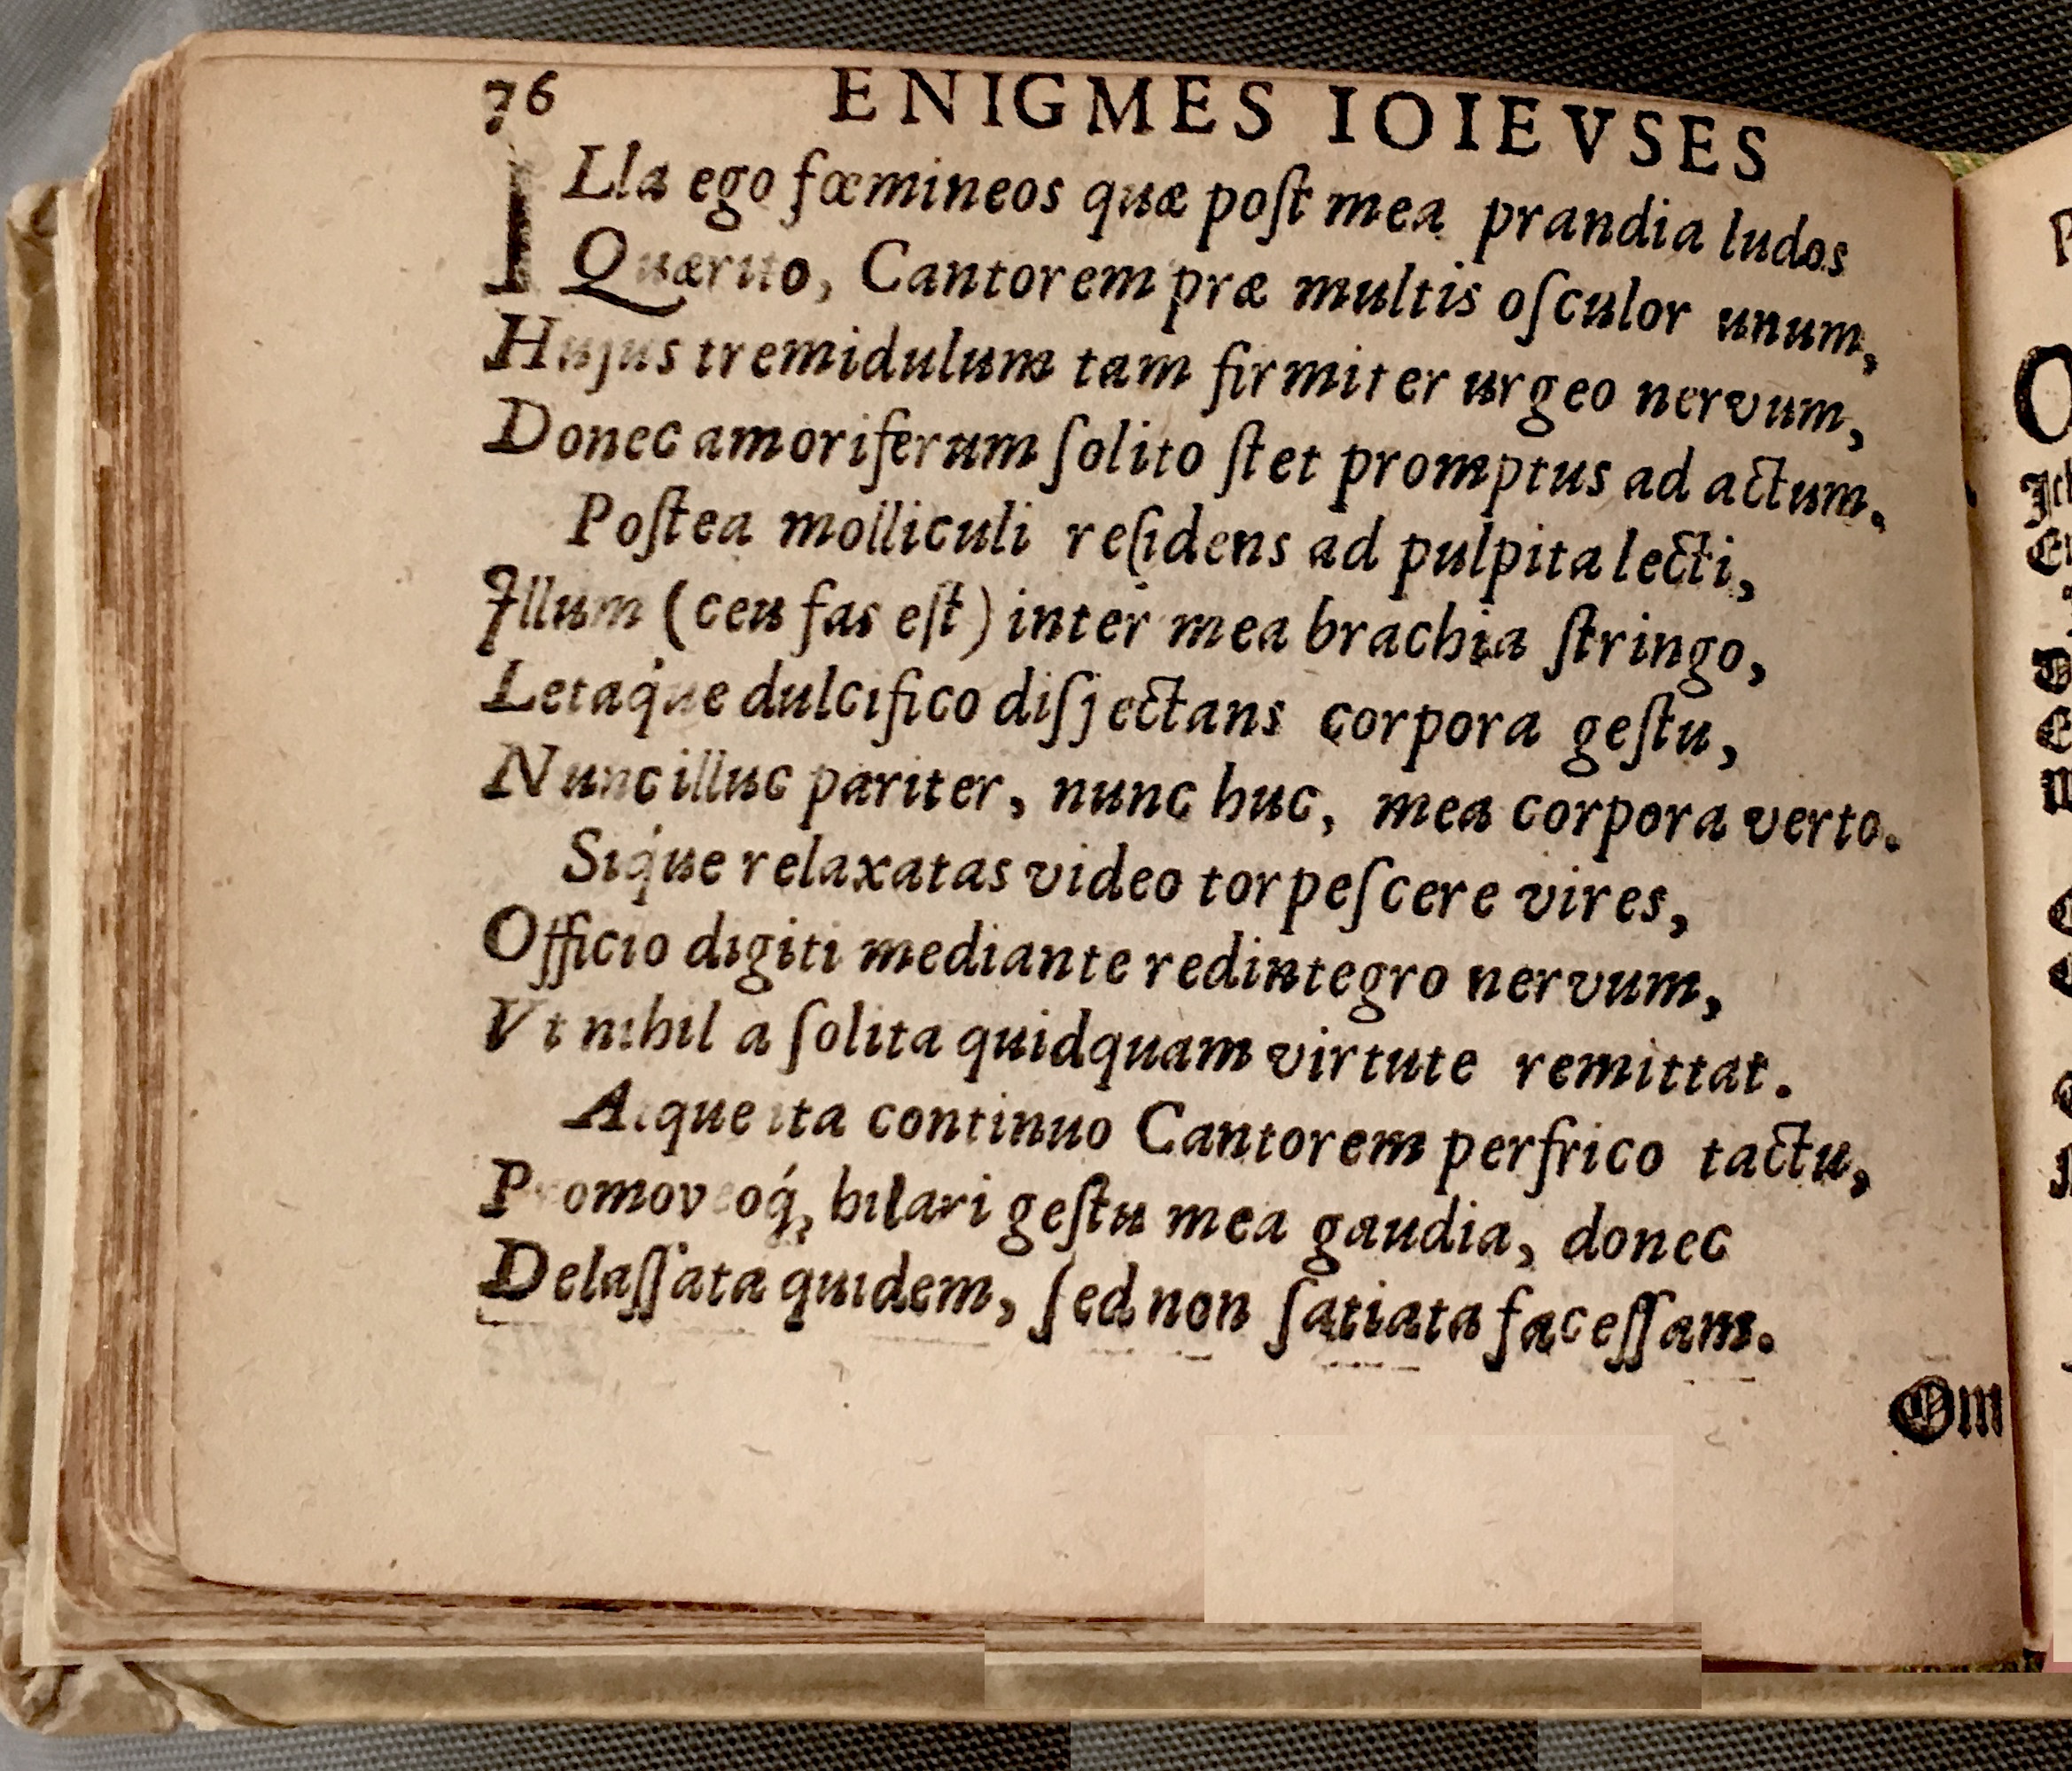 76 ENIGMES IOIEVSES
ILla ego fœmineos quæ poſt mea prandia ludos
Quærito, Cantorem præ multis oſculor unum,
Hujus tremidulum tam firmiter urgeo nervum,
Donec amoriferum ſolito ſtet promptus ad actum.
Poſtea molliculi reſidens ad pulpita lecti,
Illum (ceu fas eſt) inter mea brachia ſtringo,
Letaq́ue dulcifico diſjectans corpora geſtu,
Nunc illuc pariter, nunc huc, mea corpora verto.
Siq́ue relaxatas video torpeſcere vires,
Officio digiti mediante redintegro nervum,
Vt nihil a ſolita quidquam virtute remittat.
Atque ita continuo Cantorem perfrico tactu,
Promoveoq́, hilari geſtu mea gaudia, donec
Delaſſata quidem, ſed non ſatiata faceſſam.
Om